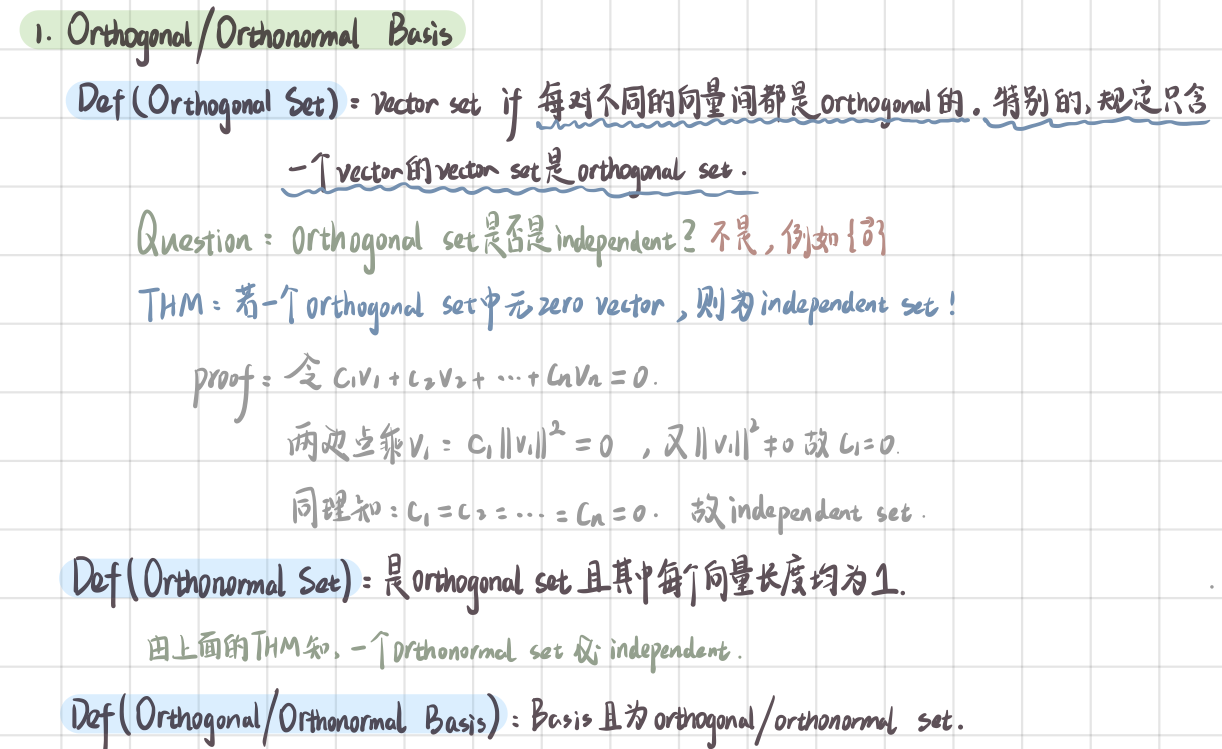 1. Orthogonal/Orthonormal Basis
Def(Orthogonal Set): Vector set if 每对不同的向量间都是orthogonal的. 特别的, 规定只含
一个vector的vector set是orthogonal set.
Question: Orthogonal set是否是independent? 不是, 例如{0⃗}
THM: 若一个orthogonal set中无zero vector, 则为independent set!
proof: 令 C₁V₁+C₂V₂+…+CₙVₙ=0.
两边点乘V₁: C₁||V₁||²=0, 又||V₁||²≠0 故 C₁=0.
同理知: C₁=C₂=…=Cₙ=0. 故independent set.
Def(Orthonormal Set): 是orthogonal set且其中每个向量长度均为1.
由上面的THM知, 一个orthonormal set 必 independent.
Def(Orthogonal/Orthonormal Basis): Basis且为orthogonal/orthonormal set.